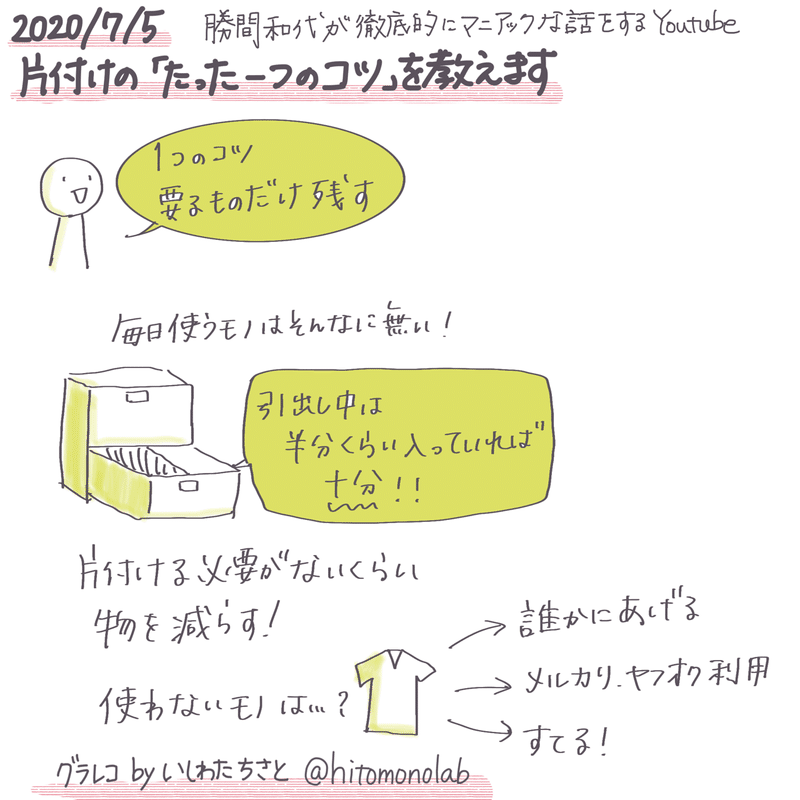 2020/7/5 勝間和代が徹底的にマニアックな話をするYoutube
片付けの「たった一つのコツ」を教えます
1つのコツ
要るものだけ残す
毎日使うモノはそんなに無い!
引出し中は
半分くらい入っていれば
十分!!
片付ける必要がないくらい
物を減らす!
使わないモノは…?
誰かにあげる
メルカリ、ヤフオク利用
すてる!
グラレコ by いしわたちさと @hitomonolab